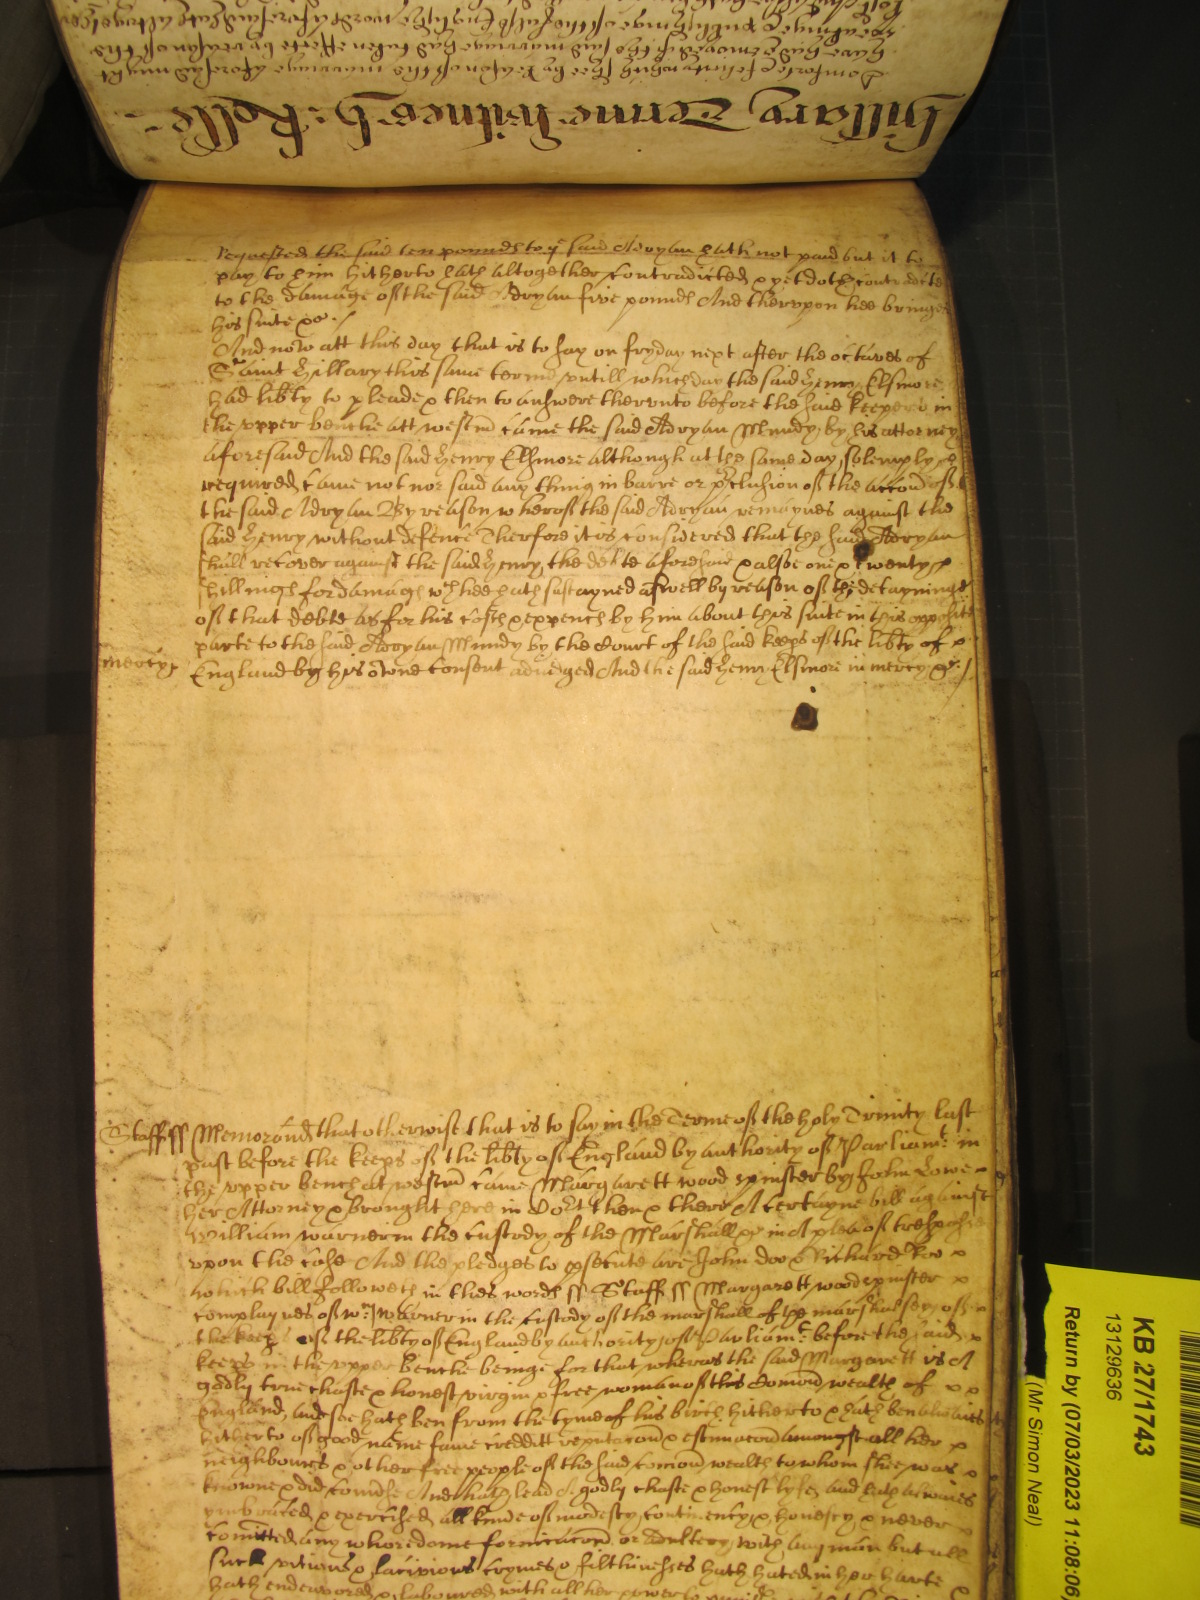 Hillary Terme Witnes H: Rolle
requested the said ten pounds to ye said Adryan hath not paid but it to
pay to him hitherto hath altogether contradicted & yet doth contradicte
to the damage of the said Adryan five pounds And therupon hee bringes
his suite &c
And now att this day that is to say on fryday next after the octaves of
Saint Hillary this same terme untill which day the said Henry Elsmore
had libty to pleade & then to answere therunto before the said keepers in
the upper benche att westm came the said Adryan Mundy by his attorney
aforesaid And the said Henry Elsmore although at the same day solemply
required came not nor said any thing in barre or pclusion of the accon of
the said Adryan By reason wherof the said Adryan remaynes against the
said Henry without defence Therfore it is considered that the said Adryan
shall recover against the said Henry the debte aforesaid & alsoe one & twenty
shillings for damags wch hee hath sustayned aswell by reason of the detayninge
of that debte as for his costs & expencs by him about this suite in this
parte to the said Adryan Mundy by the Court of the said keeps of the libty of
mercy England by his owne consent adiudged And the said Henry Elsmore in mercy &c
Staff ss Memorand that otherwise that is to say in the Terme of the holy Trinity last
past before the keeps of the libty of England by authority of Parliamt in
the upper bench at westm came Margarett wood spinster by John Lowe
her Attorney & brought here in Cort then & there A certayne bill against
William warner in the custody of the Marshall &c in A plea of trespasse
upon the case And the pledges to psecute are John doo & Richard Roo
which bill followeth in thes words ss Staff ss Margarett wood spinster
complaynes of Wm Warner in the custody of the marshall of the marshalsey of
the keeps of the libty of England by authority of Parliamt before the said
keeps in the upper benche beinge for that wheras the said Margarett is A
godly true chaste & honest virgin & free woman of this Comon wealth of
England, and soe hath ben from the tyme of his birth hitherto & hath ben alwaies
hitherto of good name fame credditt reputacon & estimacon amongst all her
neighbours & other free people of the said comon wealth to whom shee was
knowne & did And hath lead A godly chaste & honest lyfe, and hath alwaies
imbraced & exercised all kinde of modesty, continency, & honesty & never
comitted any whoredome fornicacon or Adultery with any man but all
such vitious & lacivious crymes & filthinesses hath hated in her harte
hath endeavored & laboured with all her power
KB 27/1743
13129636
Return by (07/03/2023 11:08:06)
(Mr Simon Neal)